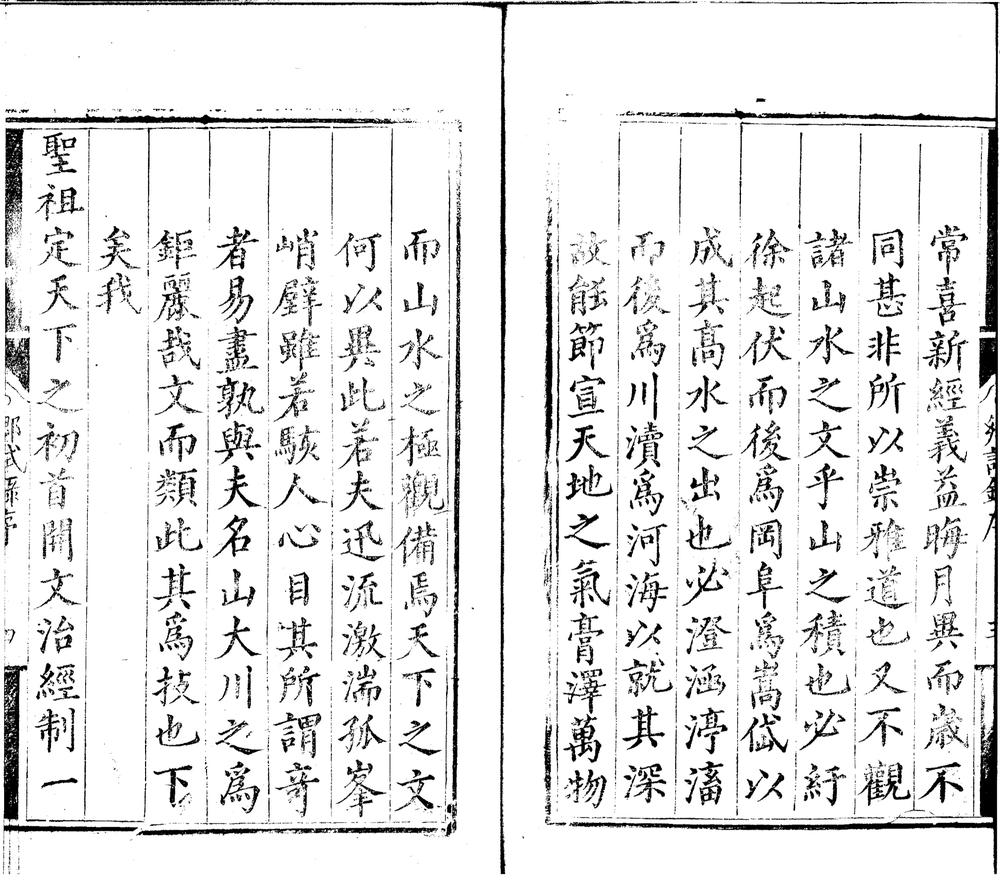 常喜新經義益晦月異而歲不
同甚非所以崇雅道也又不觀
諸山水之文乎山之積也必紆
徐起伏而後爲岡阜爲嵩岱以
成其高水之出也必澄涵渟滀
而後爲川瀆爲河海以就其深
故能節宣天地之氣膏澤萬物
而山水之極觀備焉天下之文
何以異此若夫迅流激湍孤峯
峭壁雖若駭人心目其所謂奇
者易盡孰與夫名山大川之爲
鉅麗哉文而類此其爲技也下
矣我
聖祖定天下之初首開文治經制一
鄉試錄序